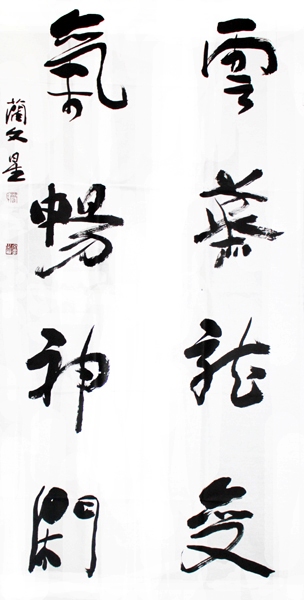 雲蒸龍變
氣暢神閑
藺文星